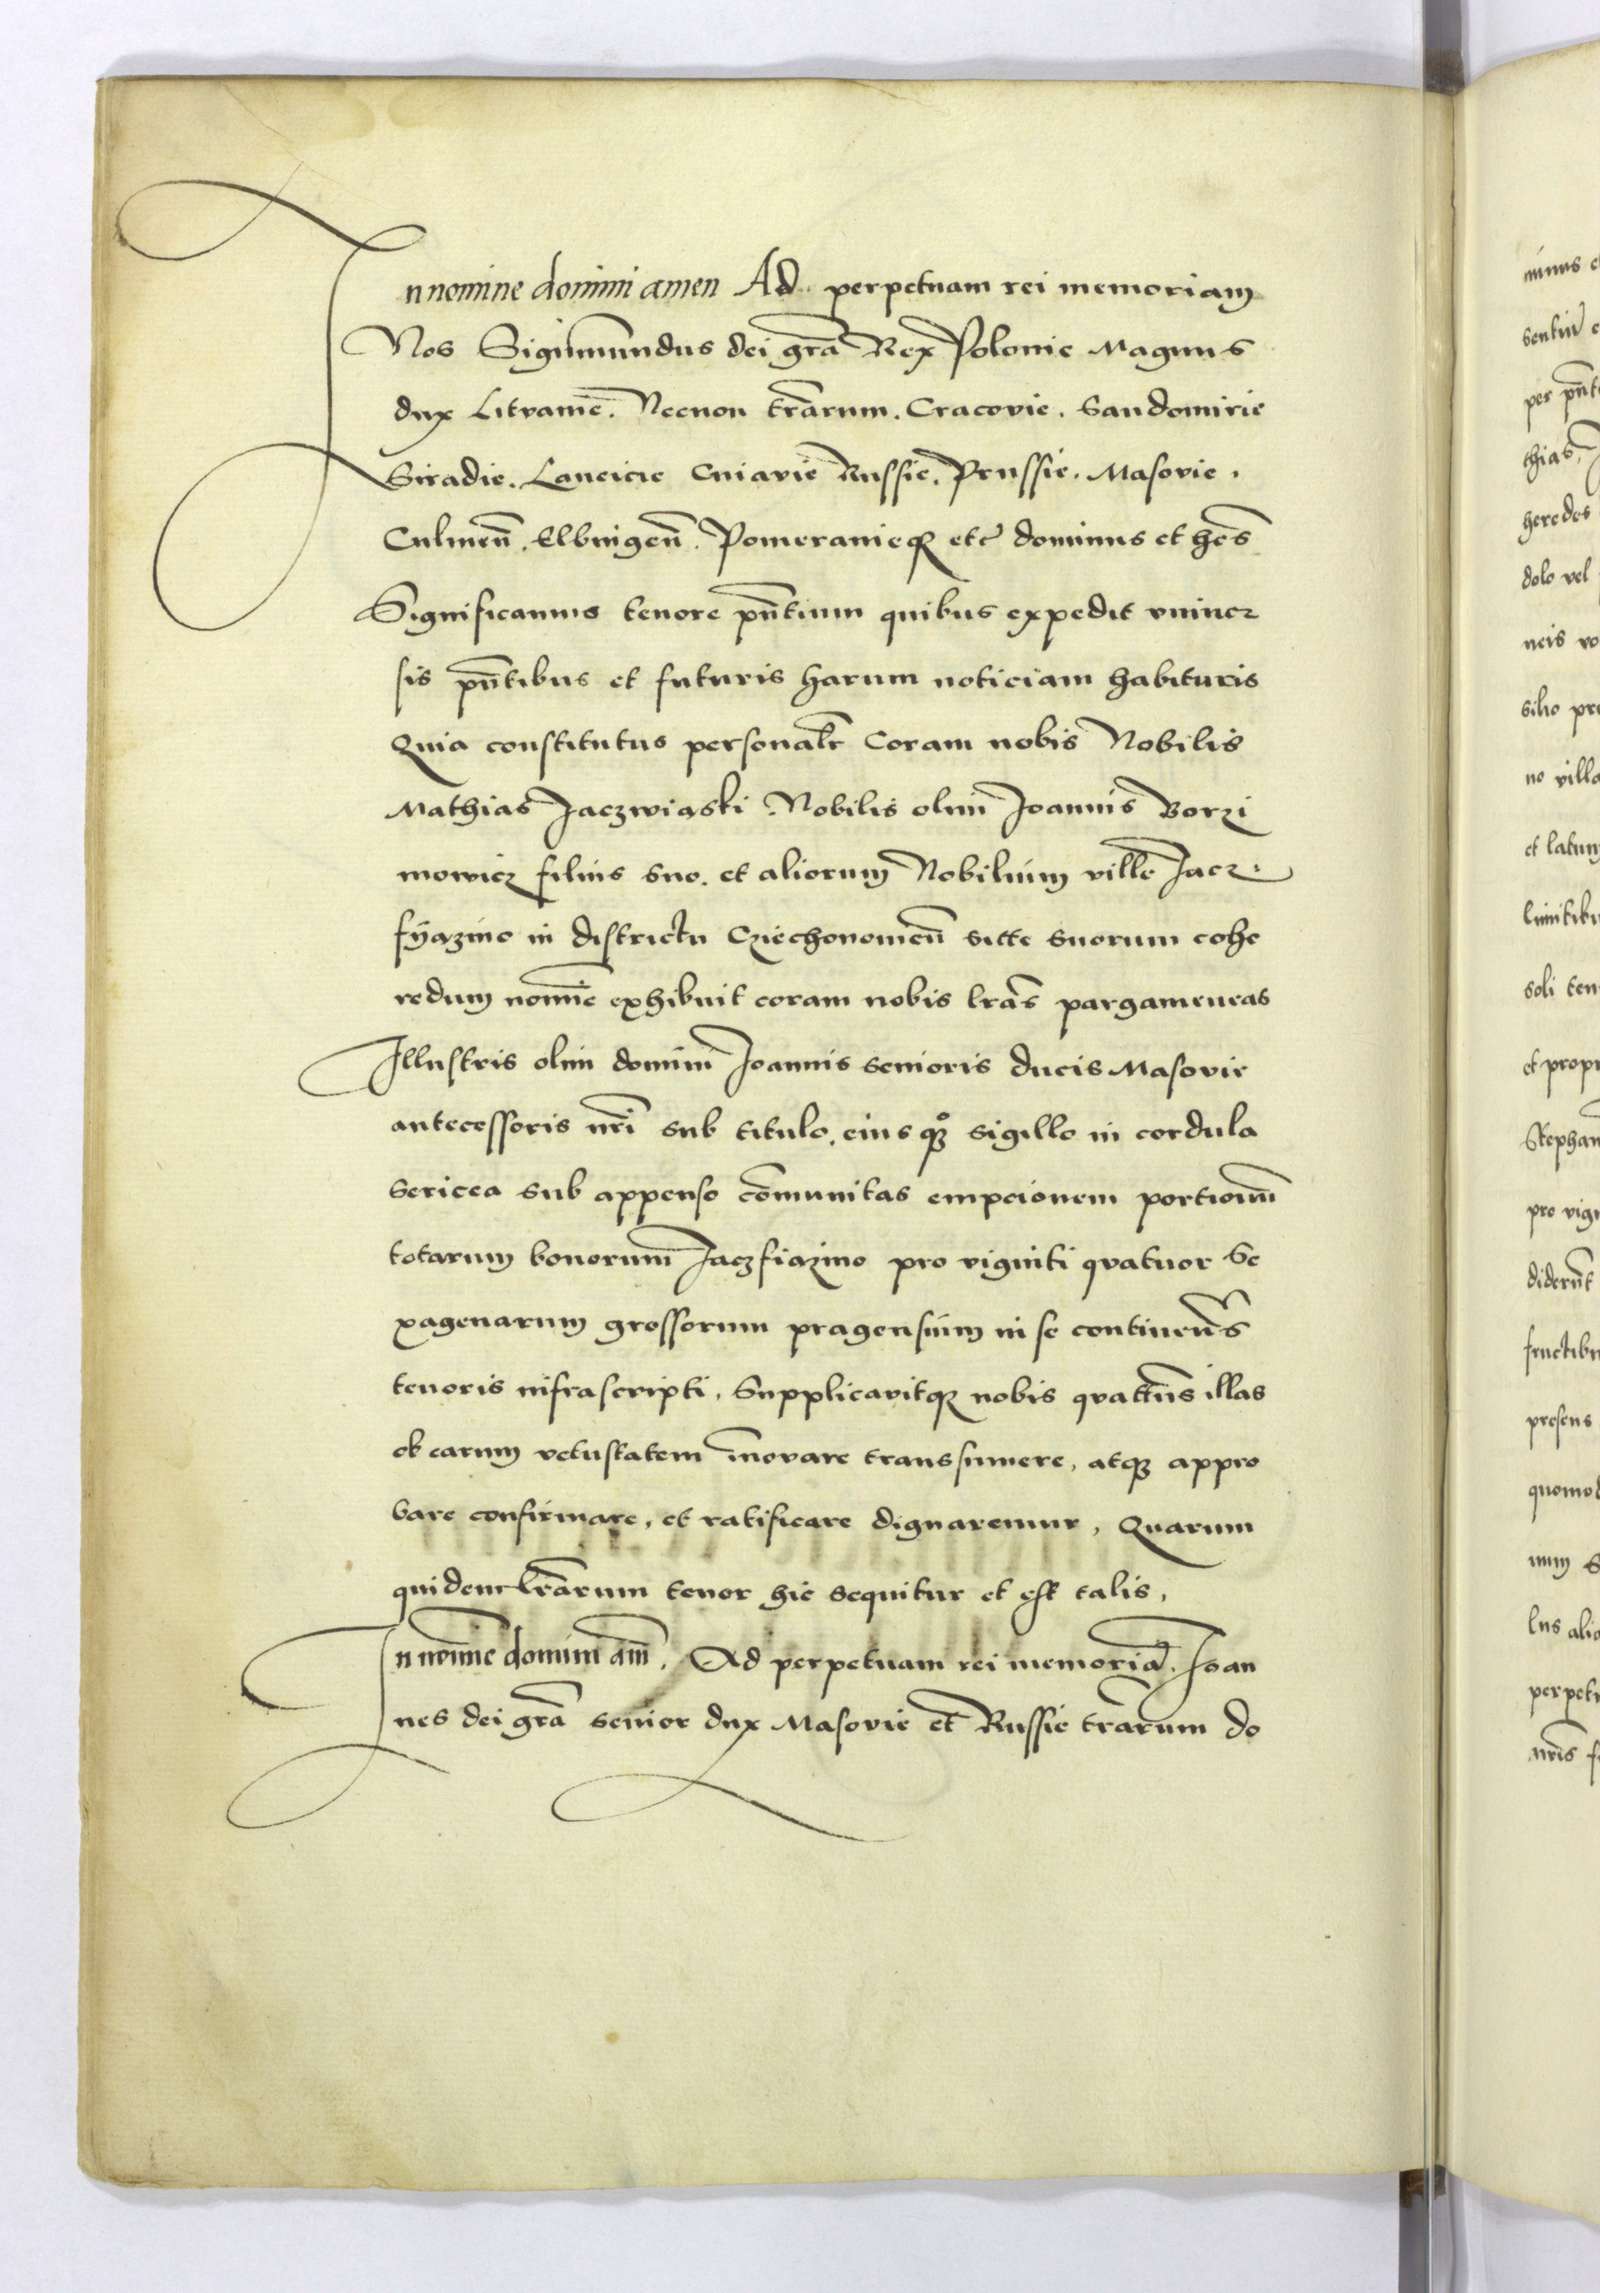 In nomine domini amen Ad perpetuam rei memoriam
Nos Sigismundus dei gr̃a Rex Polonie Magnus
dux Lituanie. Necnon tr̃arum. Cracovie. Sandomirie
Siradie. Lancicie Cuiavie Russie. Prussie. Masovie.
Culmen̄. Elbingen̄. Pomeranieqz etc̃ dominus et heēs
Significamus tenore pñtium quibus expedit vniuer
sis pñtibus et futuris harum noticiam habituris
Quia constitutus personalr̃ Coram nobis Nobilis
Mathias Jaczwiąski. Nobilis olim Joannis Borzi
mowicz filius suo. et aliorum Nobilium ville Jacz.
fÿązino in districtu Cziechonomen̄ sitte suorum cohe
redum nomīe exhibuit coram nobis lrãs pargameneas
Illustris olim domini Joannis senioris ducis Masovie
antecessoris nr̃i sub titulo. eius qz sigillo in cordula
sericea sub appenso cōmunitas empcionem portionū
totarum bonorum Jaczfiązino pro viginti quatuor Se
xagenarum grossorum pragensium in se continen̄s
tenoris infrascripti. Supplicavitqz nobis quaten̄s illas
ob earum vetustatem īnovare transsumere, atqz appro
bare confirmare, et ratificare dignaremur, Quarum
quidem lr̃arum tenor hic sequitur et est talis.
In nomīe domini am̄. Ad perpetuam rei memoriā. Joan
nes dei gr̃a senior dux Masovie et Russie tr̃arum do
minus e
sentiū c
per pñt
thias,
heredes
dolo vel
neis vo
silio pr
no villa
et latum
limitibu
soli ten
et propr
Stephan
pro vig
diderūt
fructibu
presens
quomod
num S
lus alio
perpetu
nr̃is f